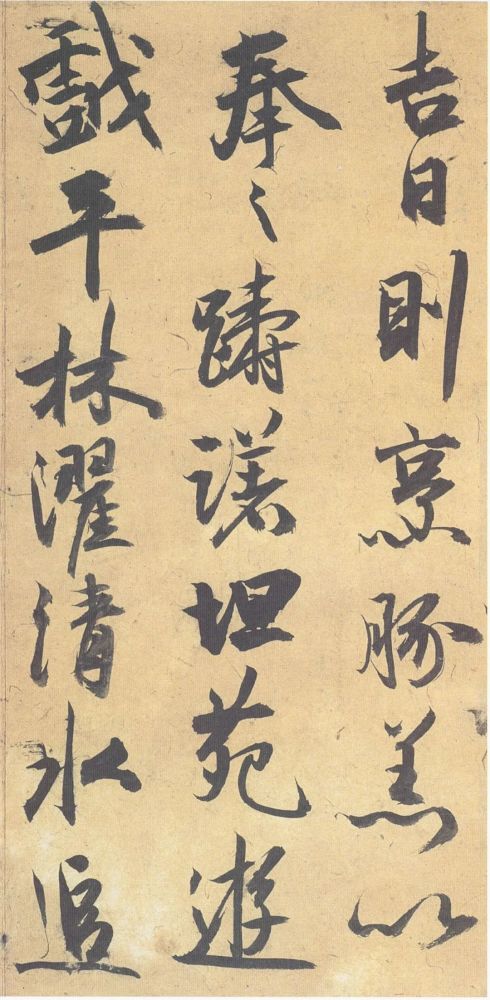 吉日則烹豚羔以
奉之躊躇坦苑遊
戲平林濯清水追